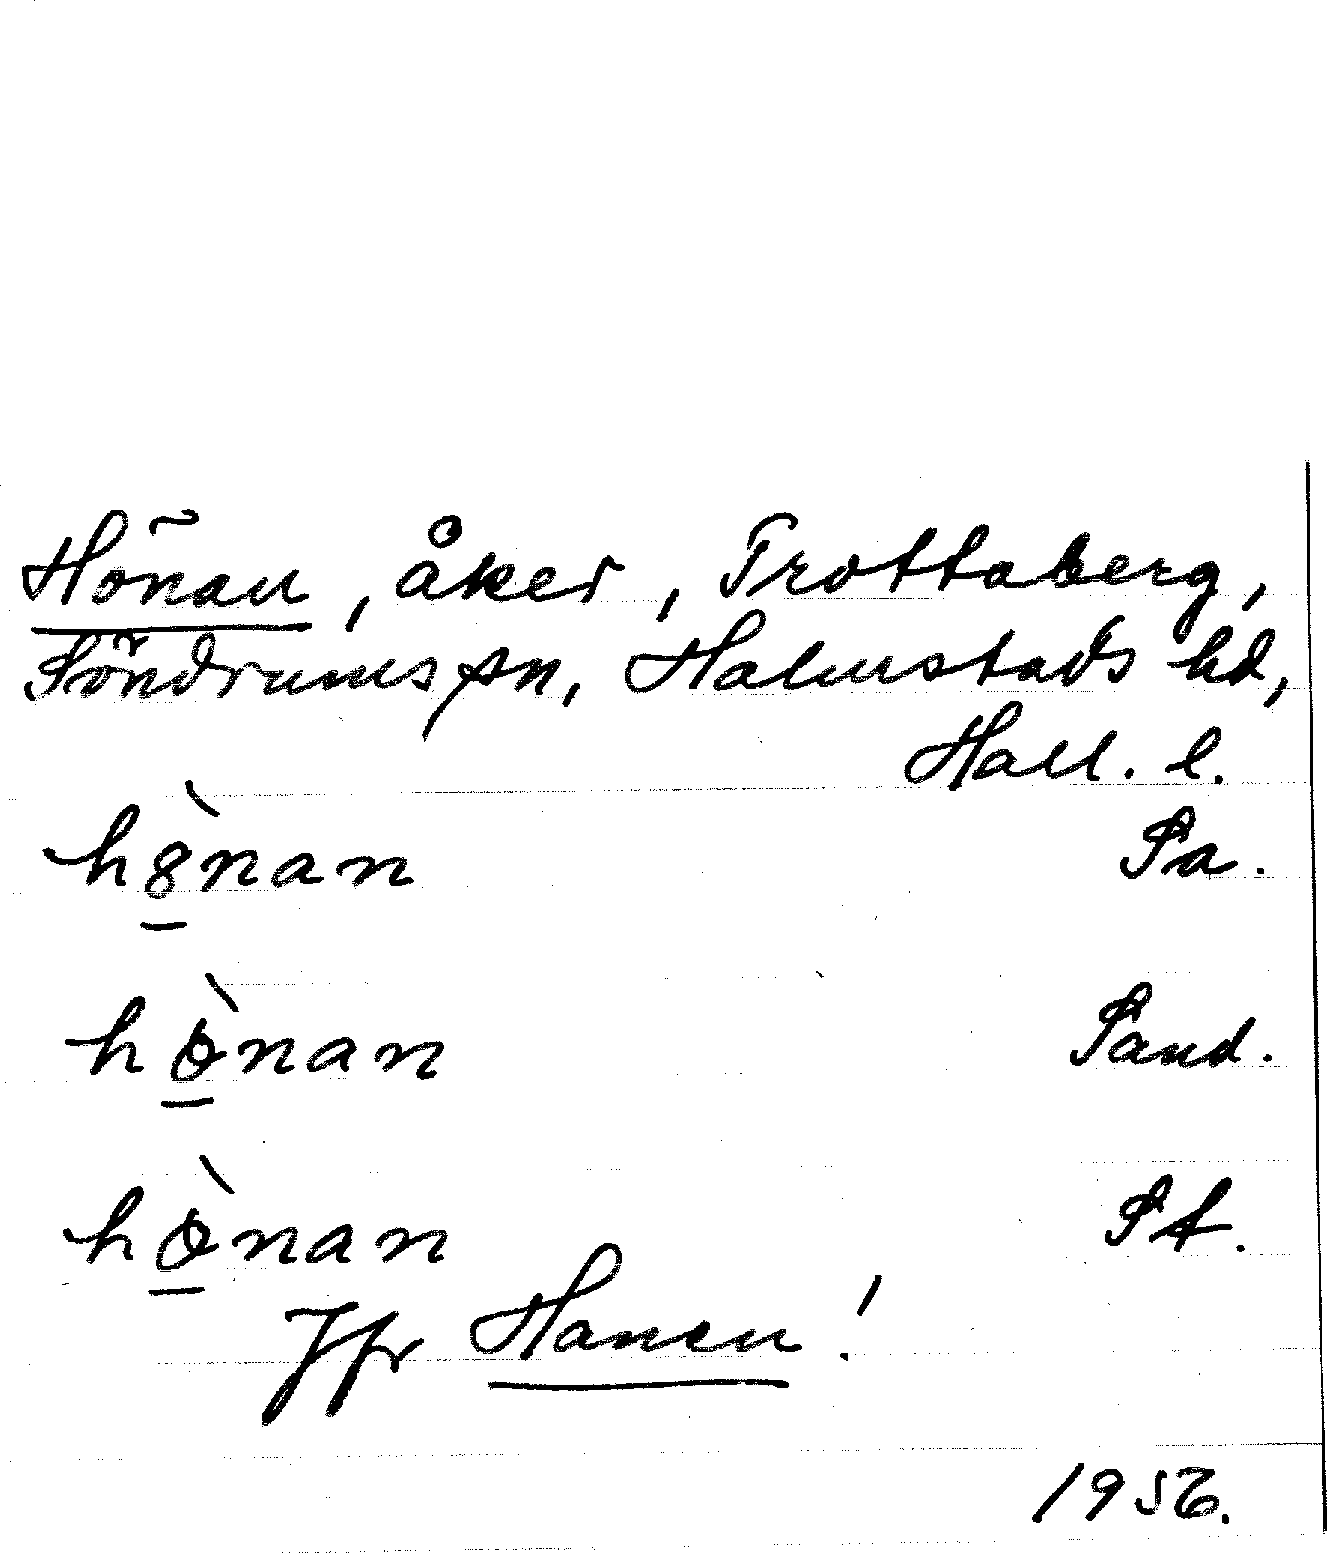 Hönan, åker, Trottaberg,
Söndrums sn, Halmstads hd,
Hall. l.
hø̀nan Sa.
hø̀nan Sand.
hø̀nan St.
Jfr Hanen!
1956.